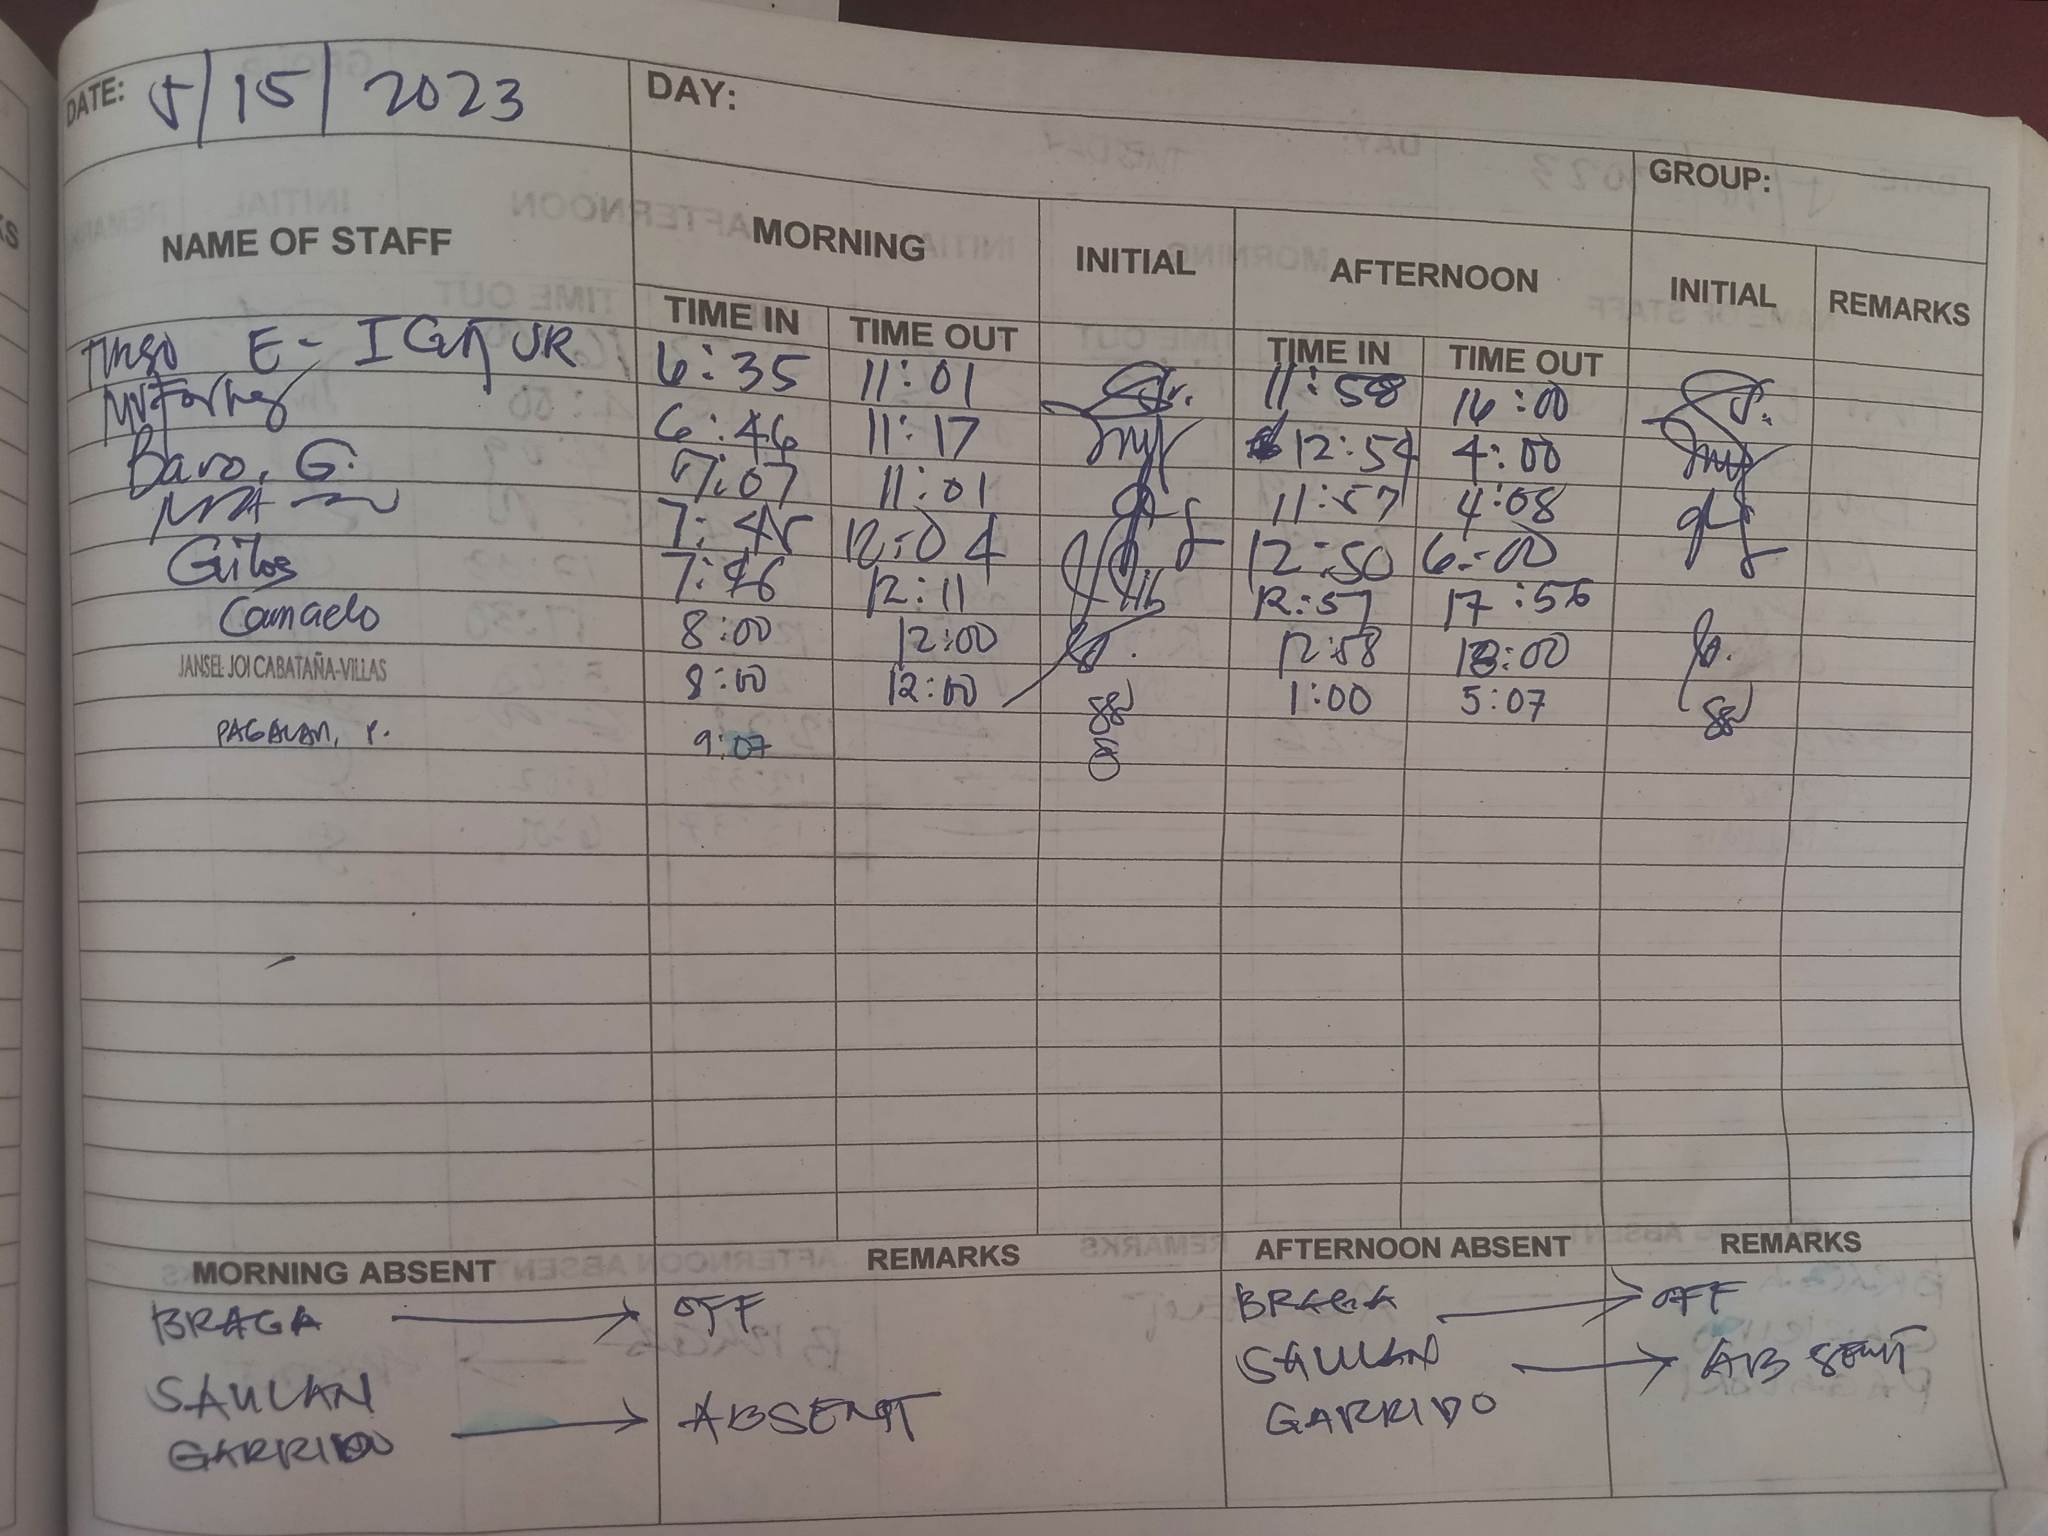 DATE: 5/15/2023 DAY: GROUP:
NAME OF STAFF MORNING INITIAL AFTERNOON INITIAL REMARKS
TIME IN TIME OUT TIME IN TIME OUT
E- JR 6:35 11:01 11:58 16:00
6:46 11:17 12:54 4:00
Baro, G. 7:07 11:01 11:57 4:08
7:45 12:04 12:50 6:00
Gilos 7:46 12:11 12:57 17:56
Camaelo 8:00 12:00 12:58 18:00
JANSEL JOI CABATAÑA-VILLAS 8:00 12:00 1:00 5:07
PAGALAN, P. 9:07
MORNING ABSENT REMARKS AFTERNOON ABSENT REMARKS
BRAGA OFF BRAGA OFF
SAULAN SAULAN ABSENT
GARRIDO ABSENT GARRIDO